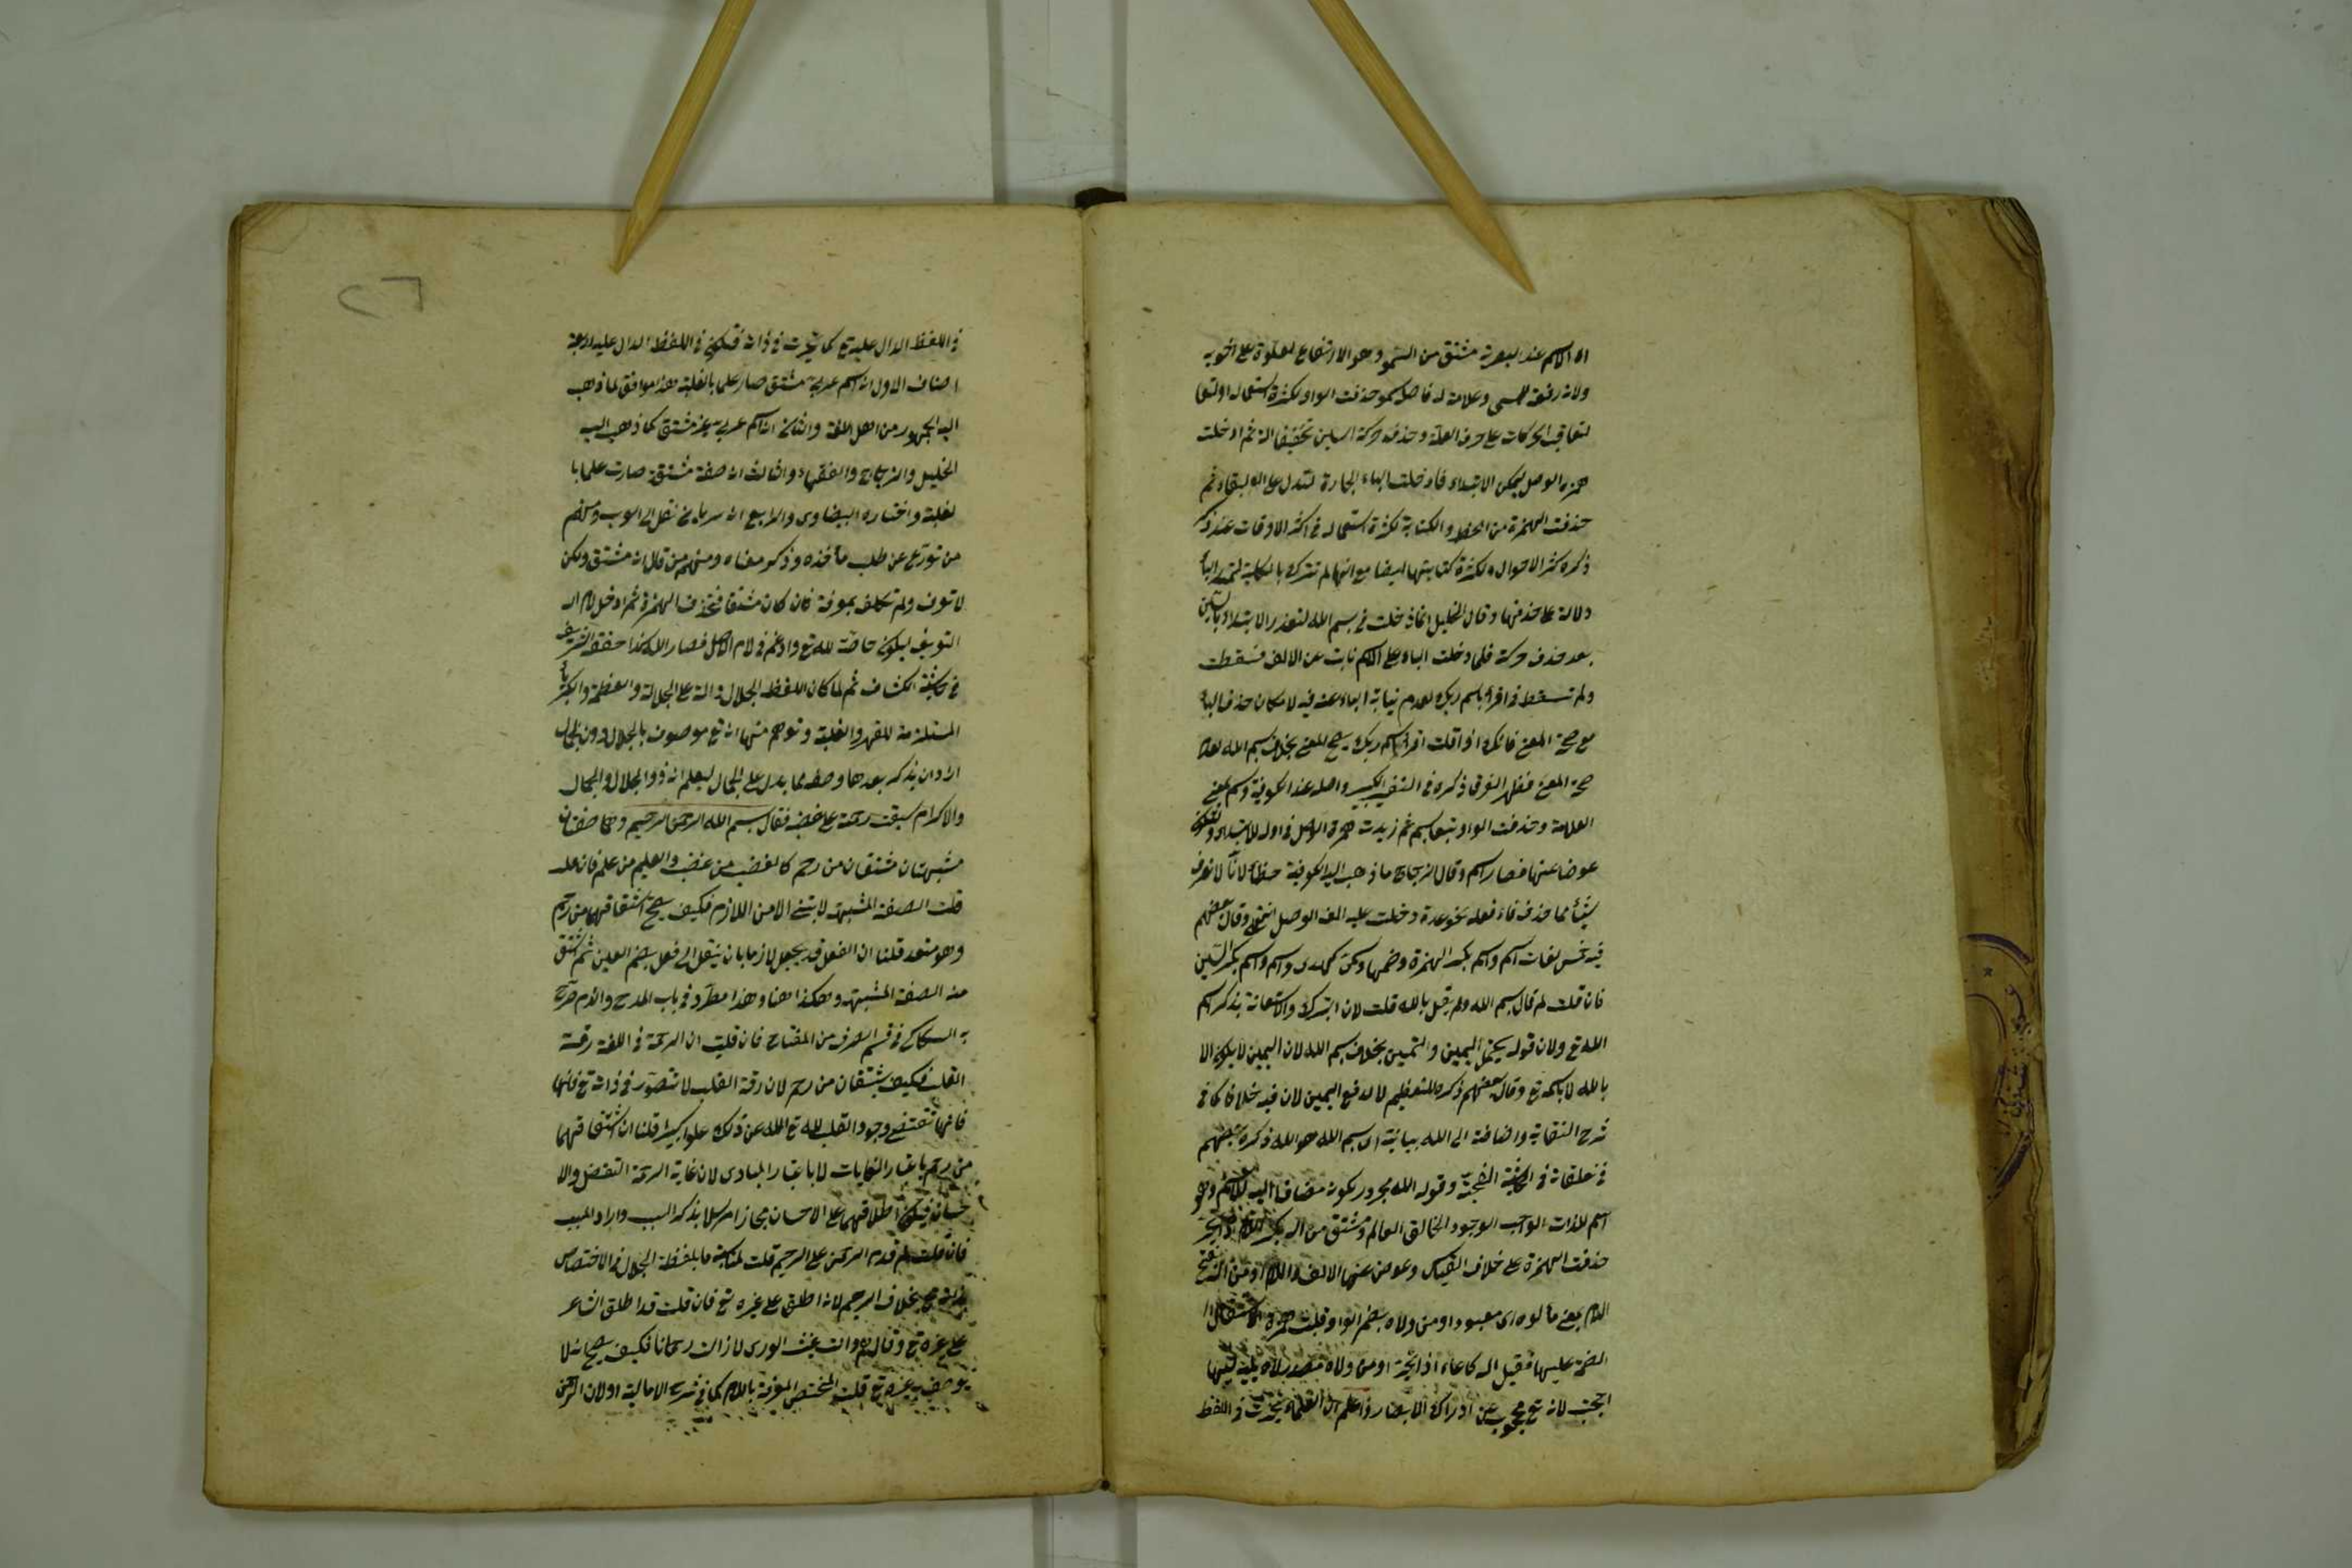 ان الاسم عند البصرية مشتق من السمو وهو الارتفاع لعلوه على اخويه
ولانه رفعة للمسمى وعلامة له فاصله سمو حذفت الواو لكثرة استعماله او لتعا
لتعاقب الحركات على حرف العلة وحذف حركة السين تخفيفا له ثم ادخلت
همزة الوصل ليمكن الابتداء فادخلت الباء الجارة لتدل على البقاء ثم
حذفت الهمزة من الخط والكتابة لكثرة استعماله في اكثر الاوقات عند ذكر
ذكره كثر الاحوال ولكثرة كتابتها ايضا مع انها لم تترك بالكلية لتمد الباء
دلالة على حذفها وقال الخليل انما دخلت في بسم الله لتعذر الابتداء بالسين
بعد حذف حركة فلما دخلت الباء على الاسم نابت عن الالف فسقطت
ولم تسقط في اقرأ باسم ربك لعدم نيابة الباء عنه فيه لامكان حذف الباء
مع صحة المعنى فانك اذا قلت اقرأ اسم ربك يصح المعنى بخلاف بسم الله لعدم
صحة المعنى فظهر الفرق ذكره في التفسير الكبير واصله عند الكوفية وسم بمعنى
العلامة وحذفت الواو تبعا ثم زيدت همزة الوصل في اوله للابتداء وليكون
عوضا عنها فصار اسم وقال الزجاج ما ذهب اليه الكوفية خطأ لانا لا نعرف
شيئا مما حذف فاء فعله نحو عدة دخلت عليه الف الوصل انتهى وقال بعضهم
فيه خمس لغات اسم واسم بكسر الهمزة وضمها وسمى كهدى وسم وسم بكسر السين
فان قلت لم قال بسم الله ولم يقل بالله قلت لان التبرك والاستعانة بذكر اسم
الله تع ولان قوله يحتمل اليمين والتيمن بخلاف بسم الله لان اليمين لا يكون الا
بالله لا باسمه تع وقال بعضهم ذكره للتعظيم لا لدفع اليمين لان فيه خلافا كما في
شرح النقاية واضافته الى الله بيانية اى بسم الله هو الله ذكره بعضهم
في تعليقاته في وقوله الله مجرور بكونه مضافا اليه للاسم وهو
اسم للذات الواجب الوجود الخالق العالم ومشتق من اله
حذفت الهمزة على خلاف القياس وعوض عنها الالف واللام او من اله بفتح
اللام بمعنى مألوه اى معبود او من ولاه بضم الواو قلبت همزة لاستثقال
الضمة عليها فقيل اله كاعاء اذا تحير او من ولاه مصدر لاه يليه ليها
احتجب لانه تع محجوب عن ادراك الابصار واعلم ان العلماء تحيرت في اللفظ
في اللفظ الدال عليه تع كما تحيرت في ذاته فيكون في اللفظ الدال عليه اربعة
اصناف الاول انه اسم عربي مشتق صار علما بالغلبة هذا موافق لما ذهب
اليه الجمهور من اهل اللغة والثاني انه اسم عربي غير مشتق كما ذهب اليه
الخليل والزجاج والفقهاء والثالث انه صفة مشتقة صارت علما با
لغلبة واختاره البيضاوى والرابع انه سريانى نقل الى العرب ومنهم
من تورع عن طلب مأخذه وذكر معناه ومنهم من قال انه مشتق ولكن
لا نعرف ولم نكلف بمعرفة فان كان مشتقا فتحذف الهمزة ثم ادخل لام الـ
التعريف ليكون خاصة لله تع وادغم في لام الاصل فصار الله هكذا حققه الشريف
في حاشية الكشاف ثم لما كان اللفظ الجلال دالة على الجلالة والعظمة والكبرياء
المستلزمة للقهر والغلبة وتوهم منها انه تع موصوف بالجلال دون الجمال
اراد ان يذكر بعدها وصفه مما يدل على الجمال ليعلم انه ذو الجلال والجمال
والاكرام سبقت رحمته على غضبه فقال بسم الله الرحمن الرحيم وهما صفتان
مشبهتان مشتقان من رحم كالغضب من غضب والعليم من علم فان
قلت الصفة المشبهة لا تبنى الا من اللازم فكيف يصح اشتقاقهما من رحم
وهو متعد قلنا ان الفعل قد يجعل لازما بان ينقل الى فعل بضم العين ثم تشتق
منه الصفة المشبهة وهكذا هنا وهذا مطرد في باب المدح والذم صرح
به السكاكى في قسم الصرف من المفتاح فان قلت ان الرحمة في اللغة رقة
القلب فكيف يشتقان من رحم لان رقة القلب لا تتصور في ذاته تع فانها
فانها تقتضى وجود القلب لله تع الله عن ذلك علوا كبيرا قلنا ان اشتقاقهما
من رحم باعتبار الغايات لا باعتبار المبادى لان غاية الرحمة التفضل والا
حسان فيكون اطلاقهما على الاحسان مجازا مرسلا بذكر السبب واراد المسبب
فان قلت لم قدم الرحمن على الرحيم قلت لمناسبة ما بلفظة الجلال في الاختصاص
بذاته تع بخلاف الرحيم لانه اطلق على غيره تع فان قلت قد اطلق الشاعر
على غيره تع وقال وانت غيث الورى لا زالت رحمانا فكيف يصح انه لا
يوصف به غيره تع قلت المختص المعرفة باللام كما في شرح الامالية او لان الرحمن